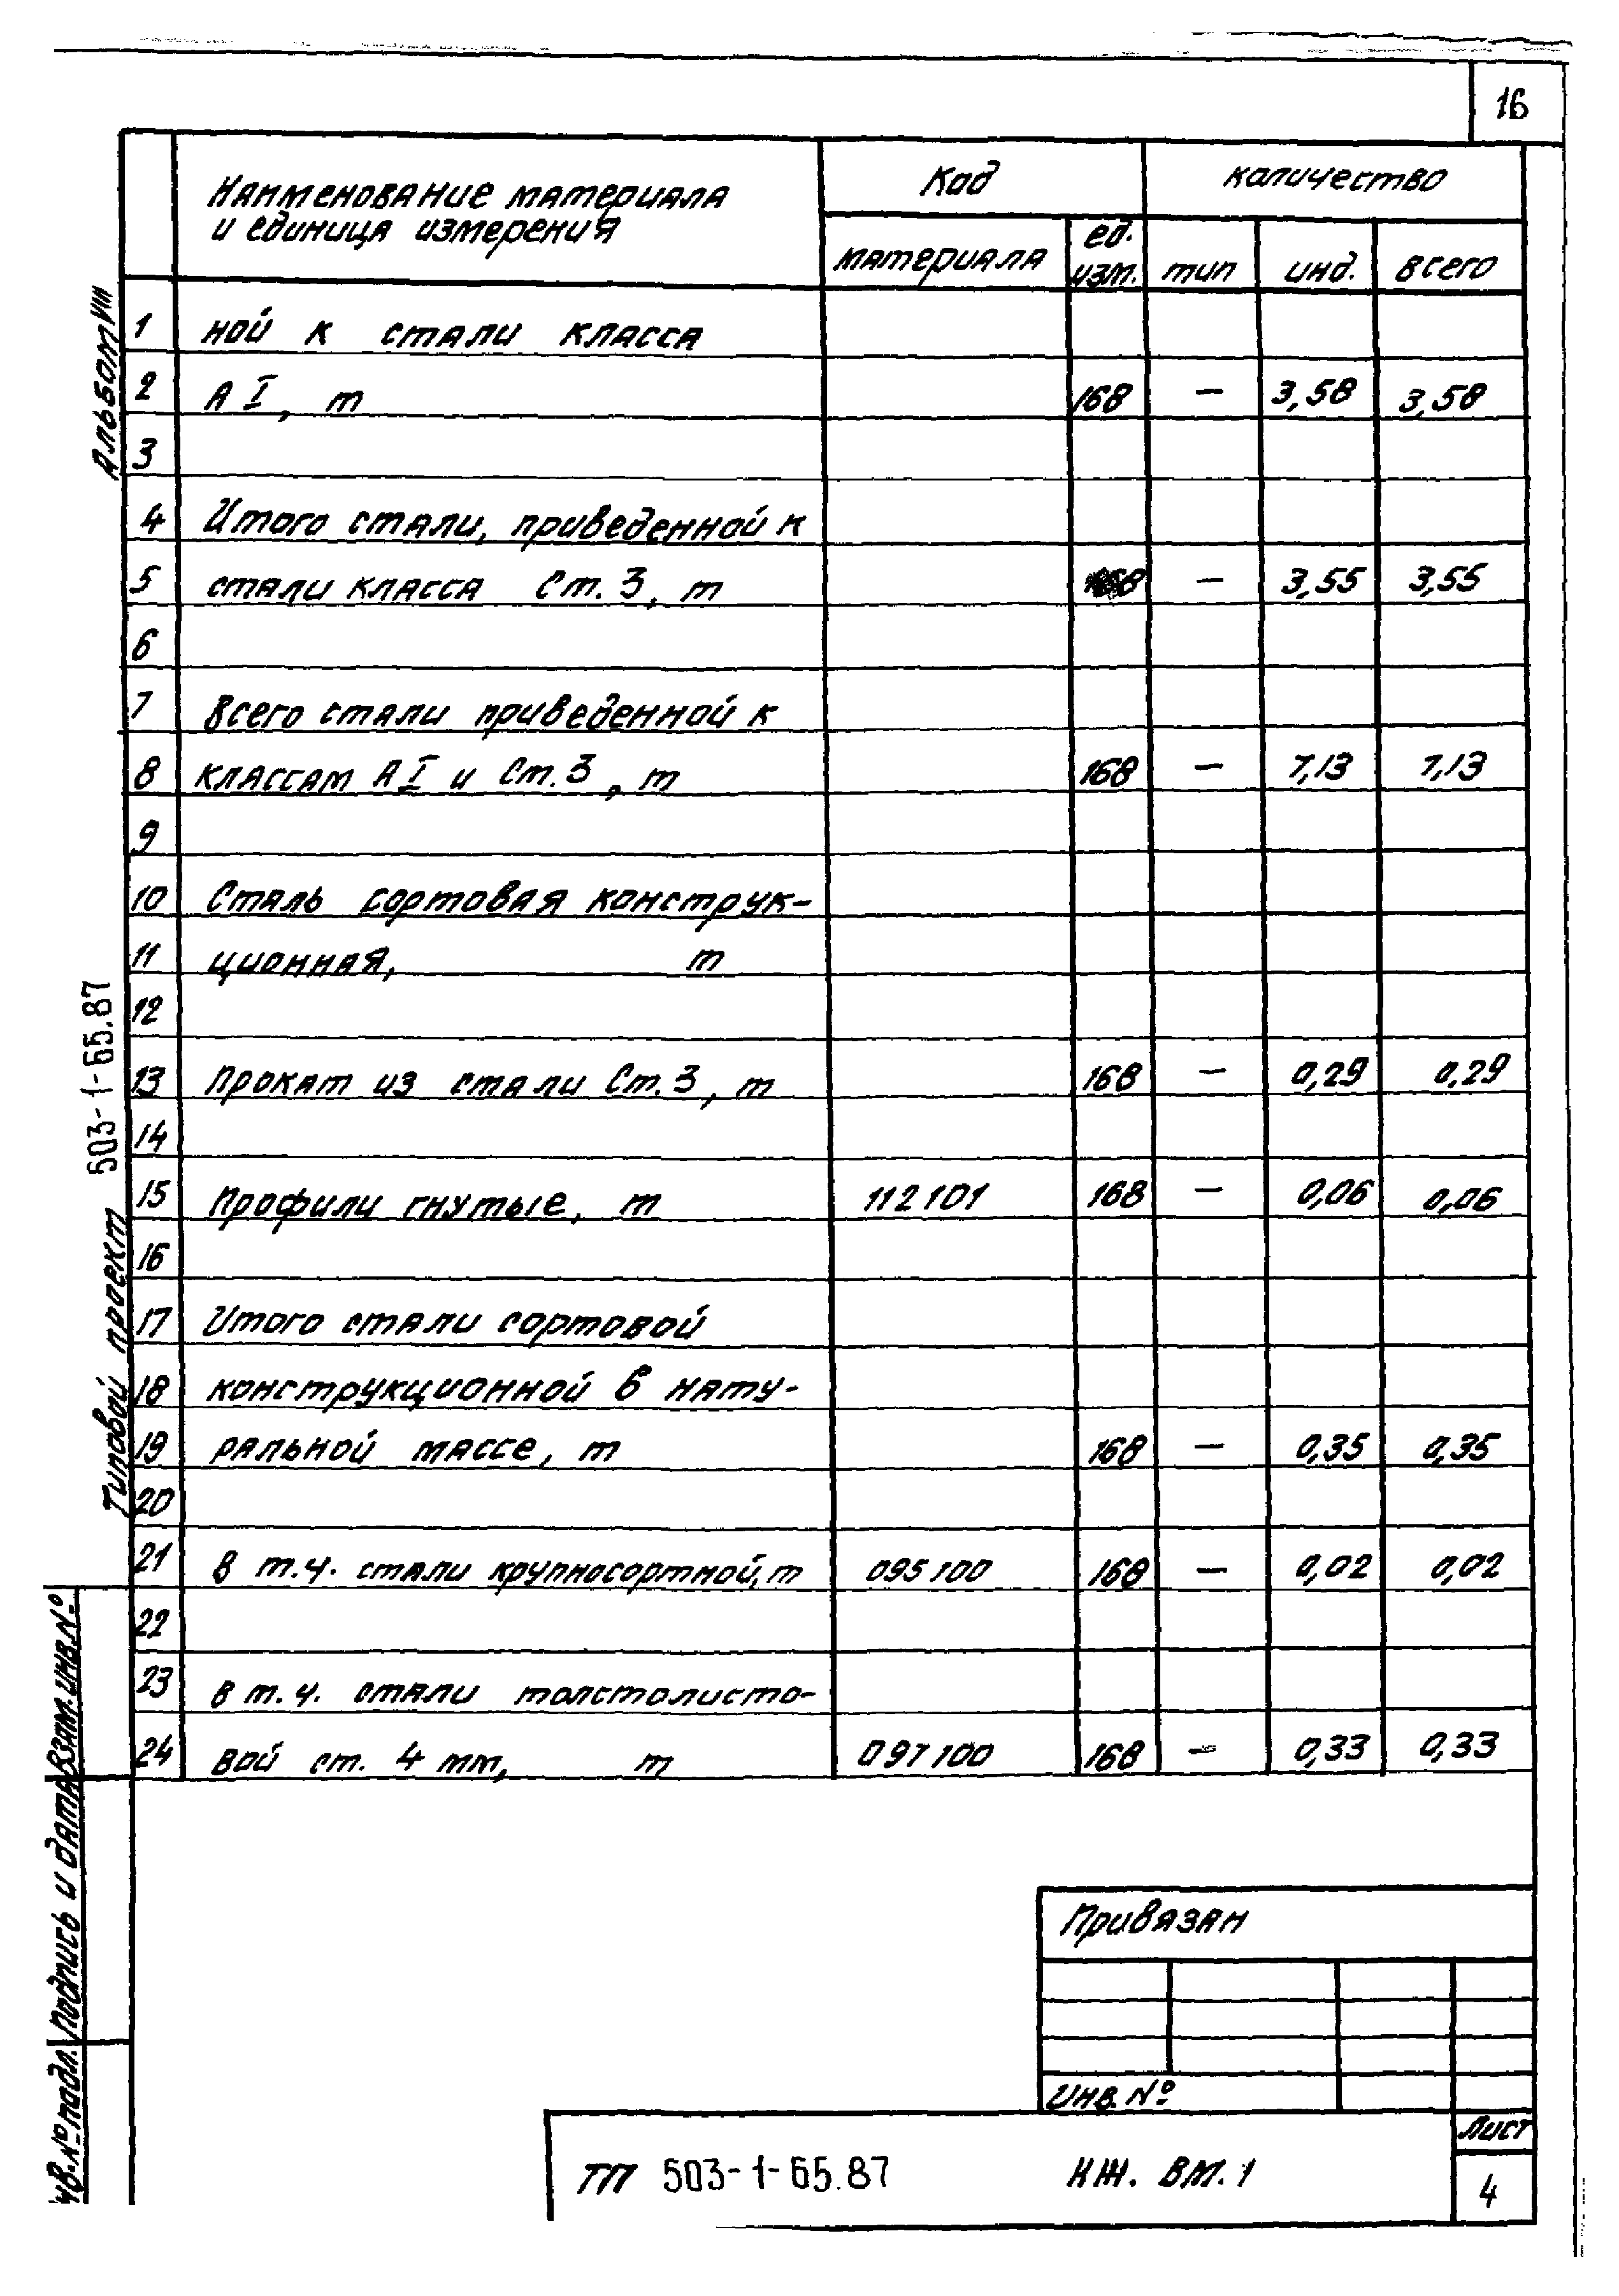 16
Наименование материала
и единица измерения
Код
количество
материала
ед.
изм.
тип
инд.
всего
1 ной к стали класса
2 А I, т 168 — 3,58 3,58
3
4 Итого стали, приведенной к
5 стали класса Ст. 3, т 168 — 3,55 3,55
6
7 Всего стали приведенной к
8 классам А I и Ст. 3, т 168 — 7,13 7,13
9
10 Сталь сортовая конструк-
11 ционная, т
12
13 Прокат из стали Ст. 3, т 168 — 0,29 0,29
14
15 Профили гнутые, т 112101 168 — 0,06 0,06
16
17 Итого стали сортовой
18 конструкционной в нату-
19 ральной массе, т 168 — 0,35 0,35
20
21 В т.ч. стали крупносортной, т 095100 168 — 0,02 0,02
22
23 в т.ч. стали толстолисто-
24 вой ст. 4 мм, т 097100 168 — 0,33 0,33
Альбом VIII
Типовой проект 503-1-65.87
Взам. инв. №
Подпись и дата
Инв. № подл.
Привязан
Инв. №
ТП 503-1-65.87 КЖ. ВМ. 1
Лист
4